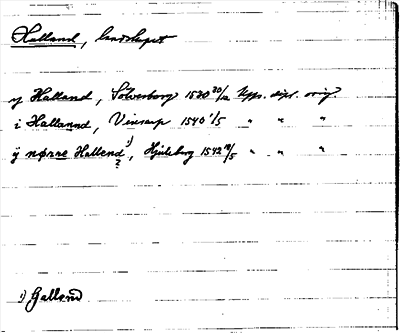 Halland, landskapet
y Halland, Sölvesborg 1530 30/12 Upps. dipl. orig.
i Hallannd, Vinsarp 1540 1/5 " " "
ÿ nørre Hallend 1), Hjuleberg 1542 18/5 " " "
?
1) Galland